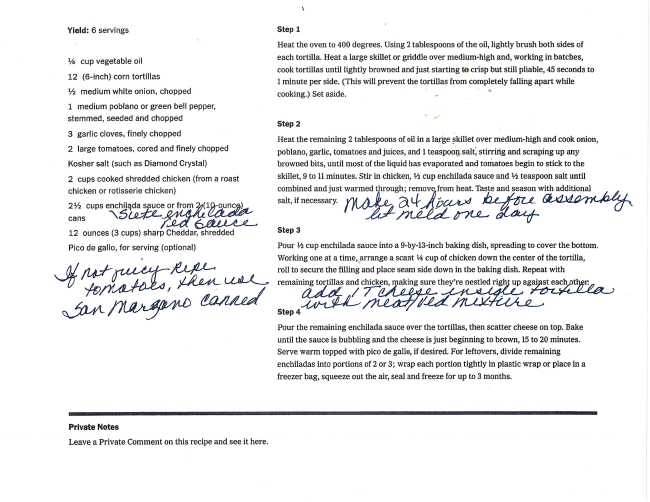 Yield: 6 servings
¼ cup vegetable oil
12 (6-inch) corn tortillas
½ medium white onion, chopped
1 medium poblano or green bell pepper,
stemmed, seeded and chopped
3 garlic cloves, finely chopped
2 large tomatoes, cored and finely chopped
Kosher salt (such as Diamond Crystal)
2 cups cooked shredded chicken (from a roast
chicken or rotisserie chicken)
2½ cups enchilada sauce or from 2 (10-ounce)
cans
Siete enchilada
red sauce
12 ounces (3 cups) sharp Cheddar, shredded
Pico de gallo, for serving (optional)
If not juicy ripe
tomatoes, then use
San Marzano canned
Step 1
Heat the oven to 400 degrees. Using 2 tablespoons of the oil, lightly brush both sides of
each tortilla. Heat a large skillet or griddle over medium-high and, working in batches,
cook tortillas until lightly browned and just starting to crisp but still pliable, 45 seconds to
1 minute per side. (This will prevent the tortillas from completely falling apart while
cooking.) Set aside.
Step 2
Heat the remaining 2 tablespoons of oil in a large skillet over medium-high and cook onion,
poblano, garlic, tomatoes and juices, and 1 teaspoon salt, stirring and scraping up any
browned bits, until most of the liquid has evaporated and tomatoes begin to stick to the
skillet, 9 to 11 minutes. Stir in chicken, ½ cup enchilada sauce and ½ teaspoon salt until
combined and just warmed through; remove from heat. Taste and season with additional
salt, if necessary.
Make 24 hours before assembly
let meld one day
Step 3
Pour ½ cup enchilada sauce into a 9-by-13-inch baking dish, spreading to cover the bottom.
Working one at a time, arrange a scant ¼ cup of chicken down the center of the tortilla,
roll to secure the filling and place seam side down in the baking dish. Repeat with
remaining tortillas and chicken, making sure they're nestled right up against each other.
add 1 T cheese inside tortilla
with meat/veg mixture
Step 4
Pour the remaining enchilada sauce over the tortillas, then scatter cheese on top. Bake
until the sauce is bubbling and the cheese is just beginning to brown, 15 to 20 minutes.
Serve warm topped with pico de gallo, if desired. For leftovers, divide remaining
enchiladas into portions of 2 or 3; wrap each portion tightly in plastic wrap or place in a
freezer bag, squeeze out the air, seal and freeze for up to 3 months.
Private Notes
Leave a Private Comment on this recipe and see it here.